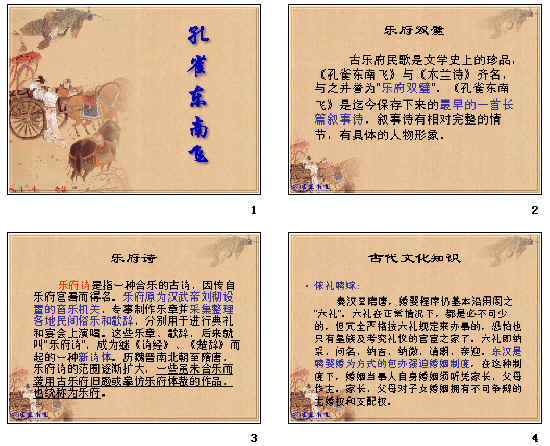 孔雀东南飞
1
乐府双璧
古乐府民歌是文学史上的珍品，
《孔雀东南飞》与《木兰诗》齐名，
与之并誉为“乐府双璧”。《孔雀东南
飞》是迄今保存下来的最早的一首长
篇叙事诗，叙事诗有相对完整的情
节，有具体的人物形象。
2
乐府诗
乐府诗是指一种合乐的古诗，因传自
乐府官署而得名。乐府原为汉武帝刘彻设
置的音乐机关，专事制作乐章并采集整理
各地民间俗乐和歌辞，分别用于进行典礼
和宴会上演唱。这些乐章、歌辞，后来就
叫“乐府诗”，成为继《诗经》、《楚辞》而
起的一种新诗体。历魏晋南北朝至隋唐，
乐府诗的范围逐渐扩大，一些虽未合乐而
袭用古乐府旧题或摹仿乐府体裁的作品，
也统称为乐府。
3
古代文化知识
• 依礼聘嫁：
秦汉至隋唐，婚娶程序仍基本沿用周之
“六礼”。六礼在正常情况下，都是必不可少
的，但完全严格按六礼规定来办事的，恐怕也
只有皇族及考究礼仪的官宦之家了。六礼即纳
采、问名、纳吉、纳徵、请期、亲迎。东汉是
聘娶婚为方式的包办强迫婚姻制度，在这种制
度下，婚姻当事人自身婚姻须听凭家长，父母
作主。家长，父母对子女婚姻拥有不可争辩的
主婚权和支配权。
4